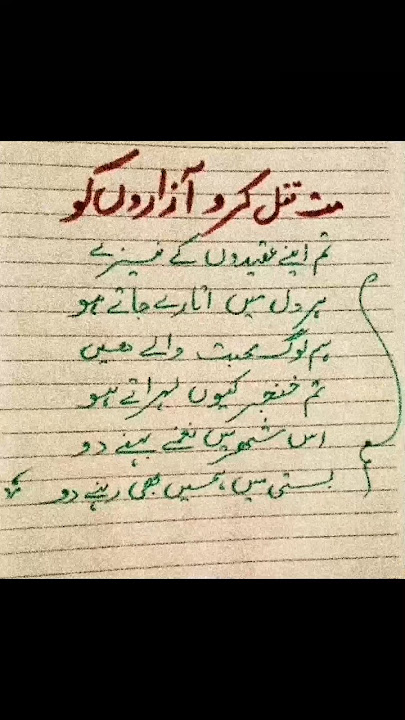 مت قتل کرو آزاروں کو
تم اپنے عقیدوں کے نیزے
ہر دل میں اتارے جاتے ہو
ہم لوگ محبت والے ہیں
تم خنجر کیوں لہراتے ہو
اس شہر میں نغمے بہنے دو
بستی میں ہمیں بھی رہنے دو